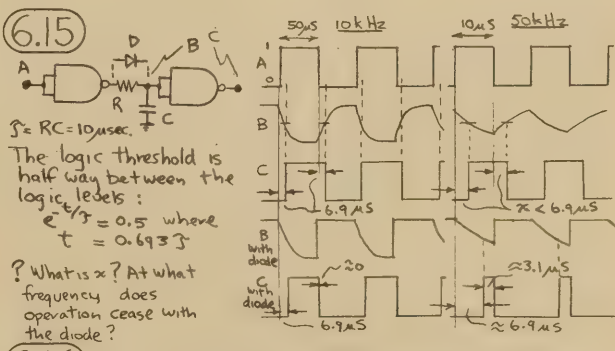 6.15
A
D
R
B
C
C
𝒯= RC = 10 µsec.
The logic threshold is
half way between the
logic levels :
e^-t/𝒯 = 0.5 where
t = 0.693 𝒯
? What is x? At what
frequency does
operation cease with
the diode ?
50µS 10kHz 10µS 50kHz
A 1
0
B
C
6.9µS x < 6.9µS
B
with
diode
≈0 ≈3.1µS
C
with
diode
6.9µS ≈ 6.9µS